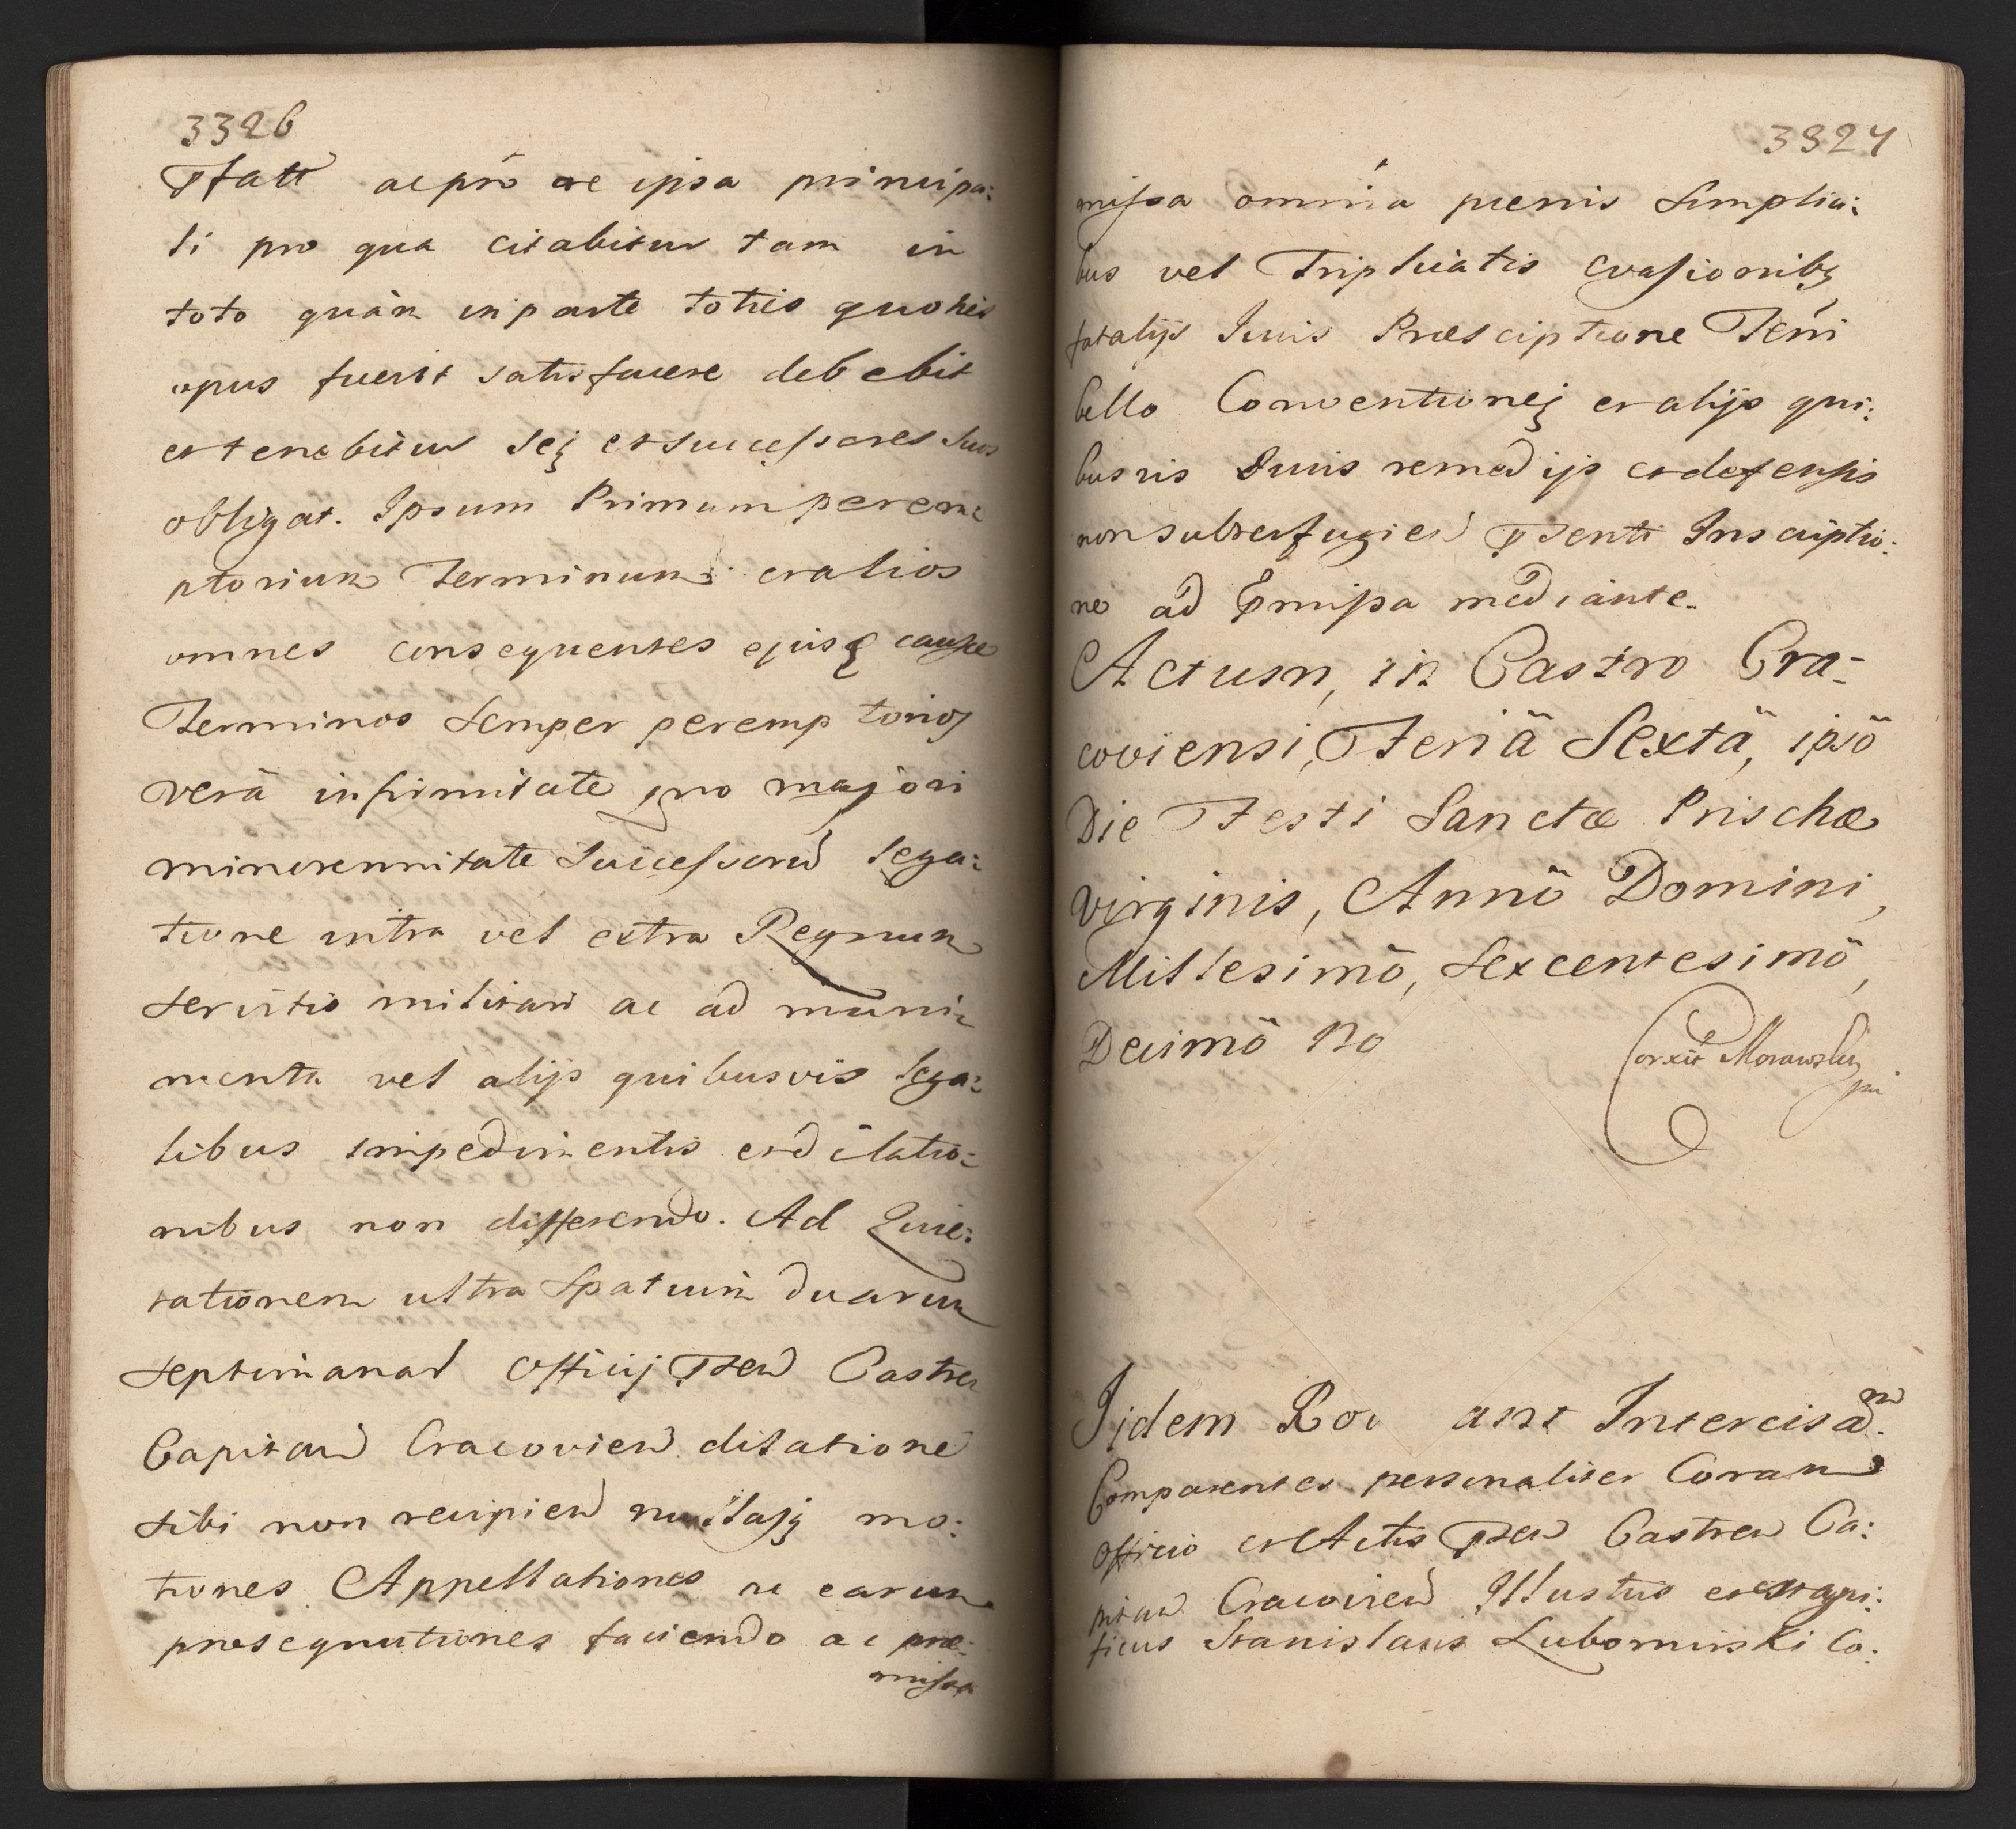 3326
Pfatt ac pro re ipsa principa:
li pro qua citabitur tam in
toto quàm in parte toties quoties
opus fuerit satisfacere debebit
et tenebitur Seq et successores suos
obligat. Ipsum Primum perem
ptorium Terminum et alios
omnes consequentes ejusq causæ
Terminos Semper peremptorios
verâ infirmitate pro majori
minorennitate Successorū lega:
tione intra vel extra Regnum
servitio militari ac ad muni:
menta vel alijs quibusvis lega:
libus impedimentis et dilatio:
nibus non differendo. Ad Quie:
tationem ultra Spatium duarum
septimanarū Officij Psen Castren
Capitan Cracovien dilatione
sibi non recipien nullasq mo:
tiones Appellationes ac earum
prosequutiones faciendo ac præ:
missa
3327
missa omnia poenis simplici:
bus vel Triplicatis evasionibq
fatalijs Juris Præscriptione Terri
bello Conventioneq et alijs qui:
busvis Juris remedijs et defensis
non subterfugien Psenti Inscriptio:
ne ad Pmissa mediante.
Actum, in Castro Cra-
coviensi, Feriâ Sextâ, ipsô
Die Festi Sanctæ Prischæ
Virginis, Annô Domini,
Millesimô, Sexcentesimô,
Decimô No
Corxit Morawsky
mp
Iidem Ro ant Intercisam.
Comparentes personaliter Coram
Officio et Actis Psen Castren Ca:
pitan Cracovien Illustris et Magni:
ficus Stanislaus Lubomirski Co: